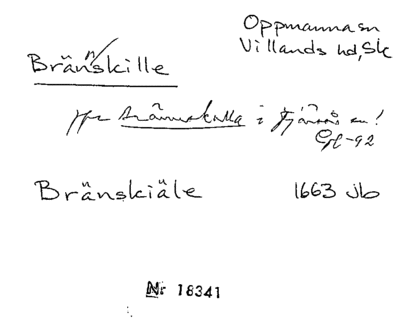 Oppmanna sn
Villands hd, Sk
Brän'skille
jfr Brännekulla i Kjinnås sn!
92
Bränskiäle 1663 Jb
Nr 18341